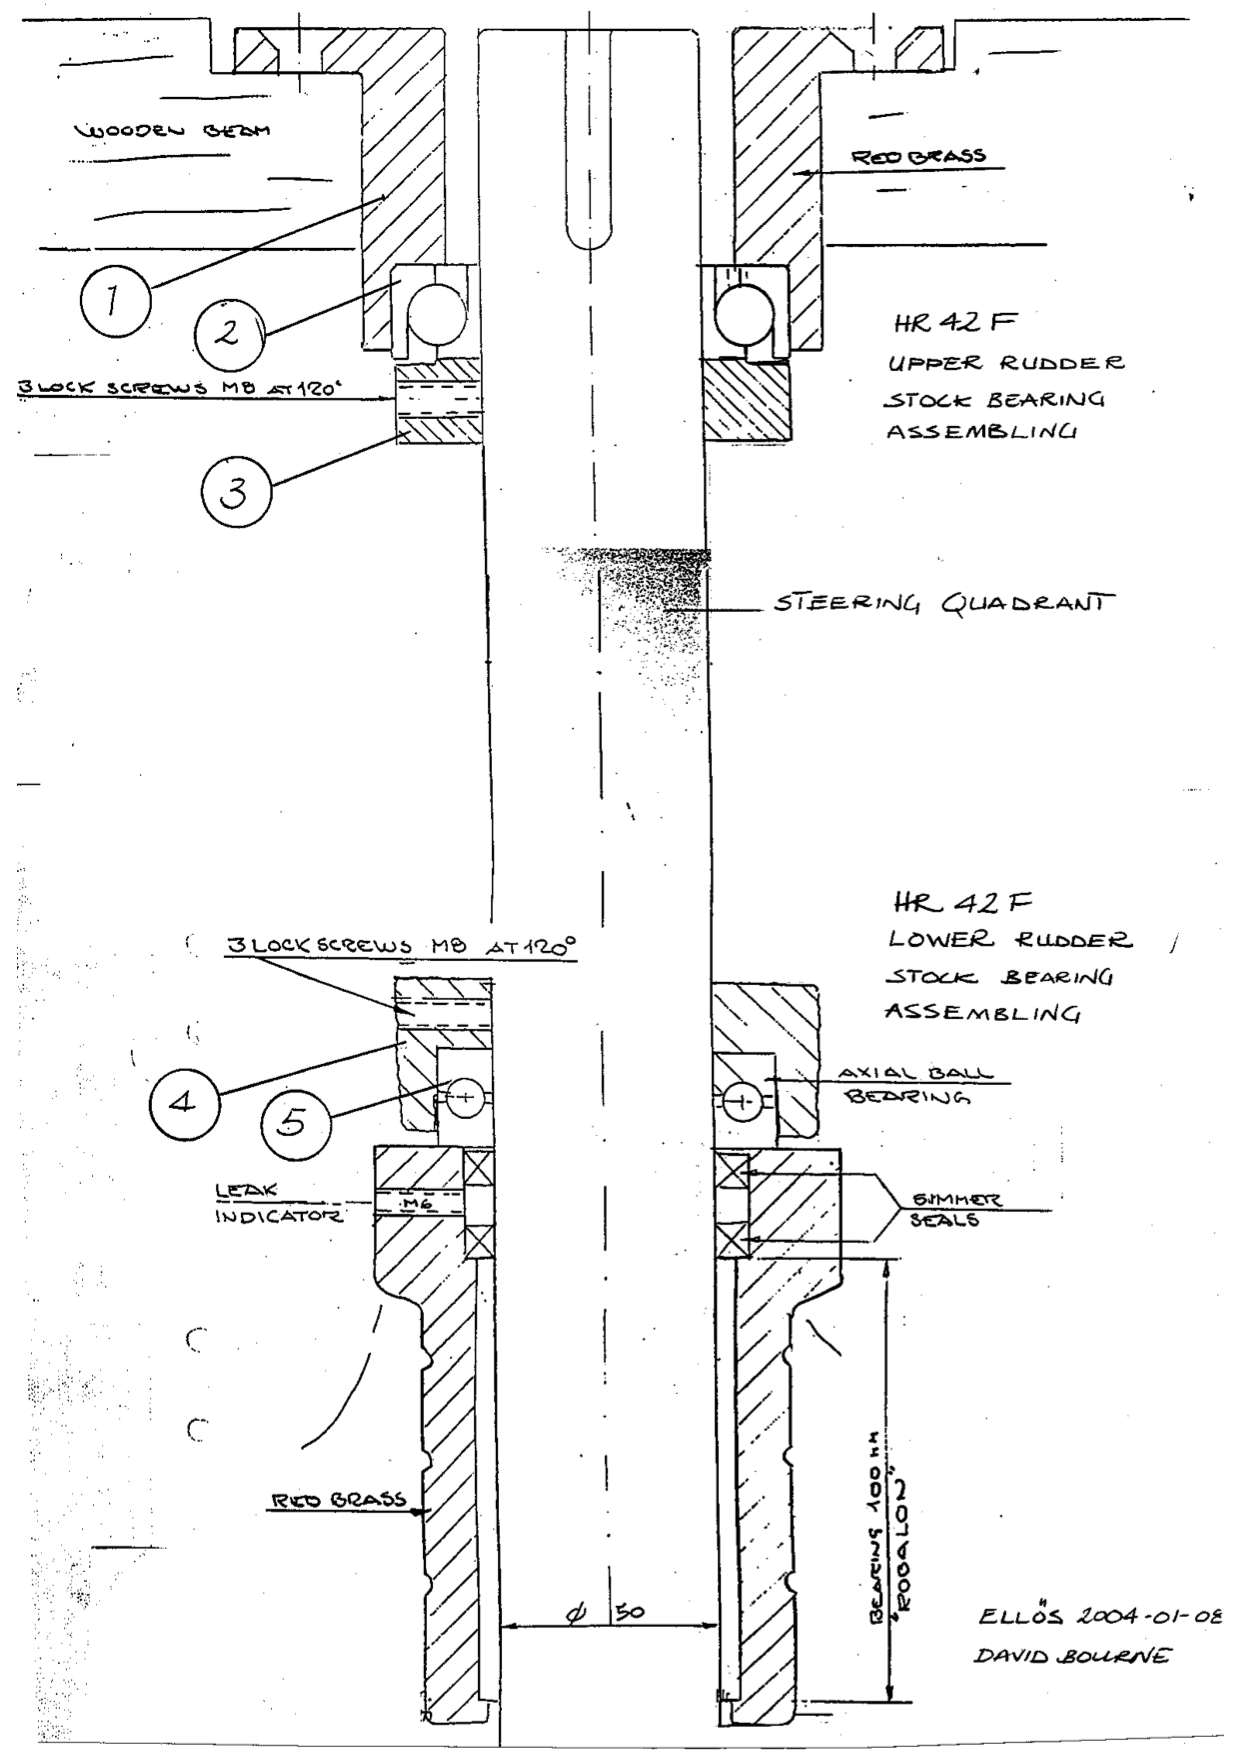 WOODEN BEAM
RED BRASS
1
2
HR 42 F
UPPER RUDDER
STOCK BEARING
ASSEMBLING
3 LOCK SCREWS M8 AT 120°
3
STEERING QUADRANT
HR 42 F
LOWER RUDDER
STOCK BEARING
ASSEMBLING
3 LOCK SCREWS M8 AT 120°
4
5
AXIAL BALL
BEARING
LEAK
INDICATOR
M6
SIMMER
SEALS
RED BRASS
BEARING 100 MM
"ROBALON"
ϕ 50
ELLÖS 2004-01-08
DAVID BOURNE